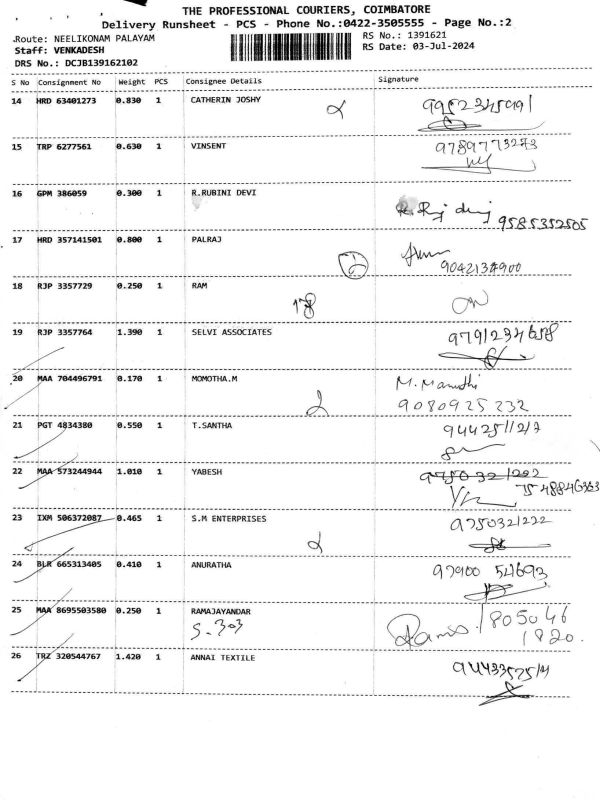 THE PROFESSIONAL COURIERS, COIMBATORE
Delivery Runsheet - PCS - Phone No.:0422-3505555 - Page No.:2
Route: NEELIKONAM PALAYAM
RS No.: 1391621
Staff: VENKADESH
RS Date: 03-Jul-2024
DRS No.: DCJB139162102
S No Consignment No Weight PCS Consignee Details Signature
14 HRD 63401273 0.830 1 CATHERIN JOSHY
15 TRP 6277561 0.630 1 VINSENT 9789773273
16 GPM 386059 0.300 1 R.RUBINI DEVI
9585352505
17 HRD 357141501 0.800 1 PALRAJ
18 RJP 3357729 0.250 1 RAM
19 RJP 3357764 1.390 1 SELVI ASSOCIATES
20 MAA 704496791 0.170 1 MOMOTHA.M
9080925232
21 PGT 4834380 0.550 1 T.SANTHA
22 MAA 573244944 1.010 1 YABESH
23 IXM 506372087 0.465 1 S.M ENTERPRISES 9750321222
24 BLR 665313405 0.410 1 ANURATHA
25 MAA 8695503580 0.250 1 RAMAJAYANDAR
S.303
26 TRZ 320544767 1.420 1 ANNAI TEXTILE